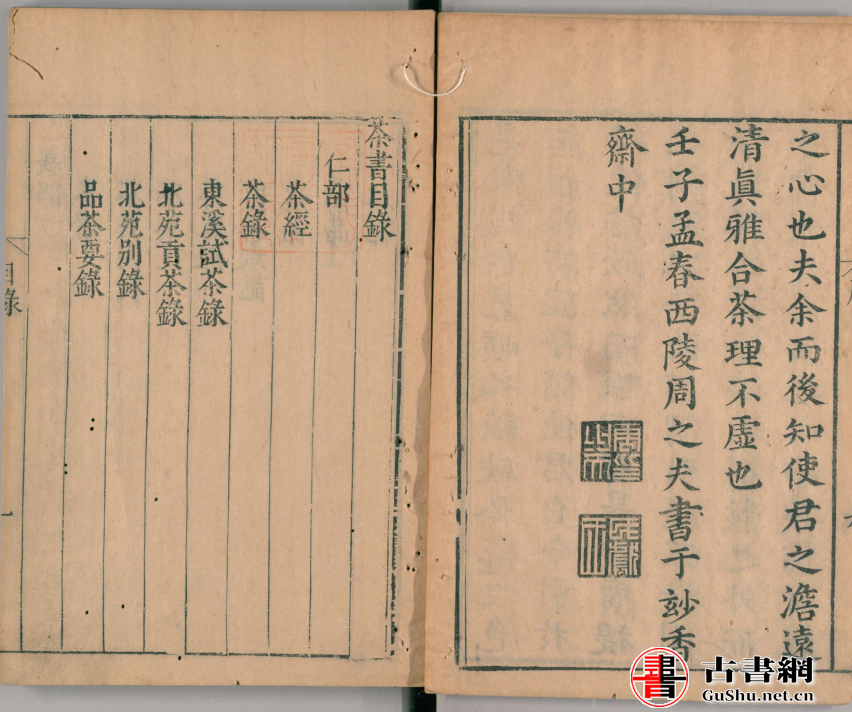 之心也夫余而後知使君之澹遠
清眞雅合茶理不虛也
壬子孟春西陵周之夫書于玅香
齋中
茶書目錄
仁部
茶經
茶錄
東溪試茶錄
北苑貢茶錄
北苑別錄
品茶要錄
目錄
一
書
古書網
GuShu.net.cn